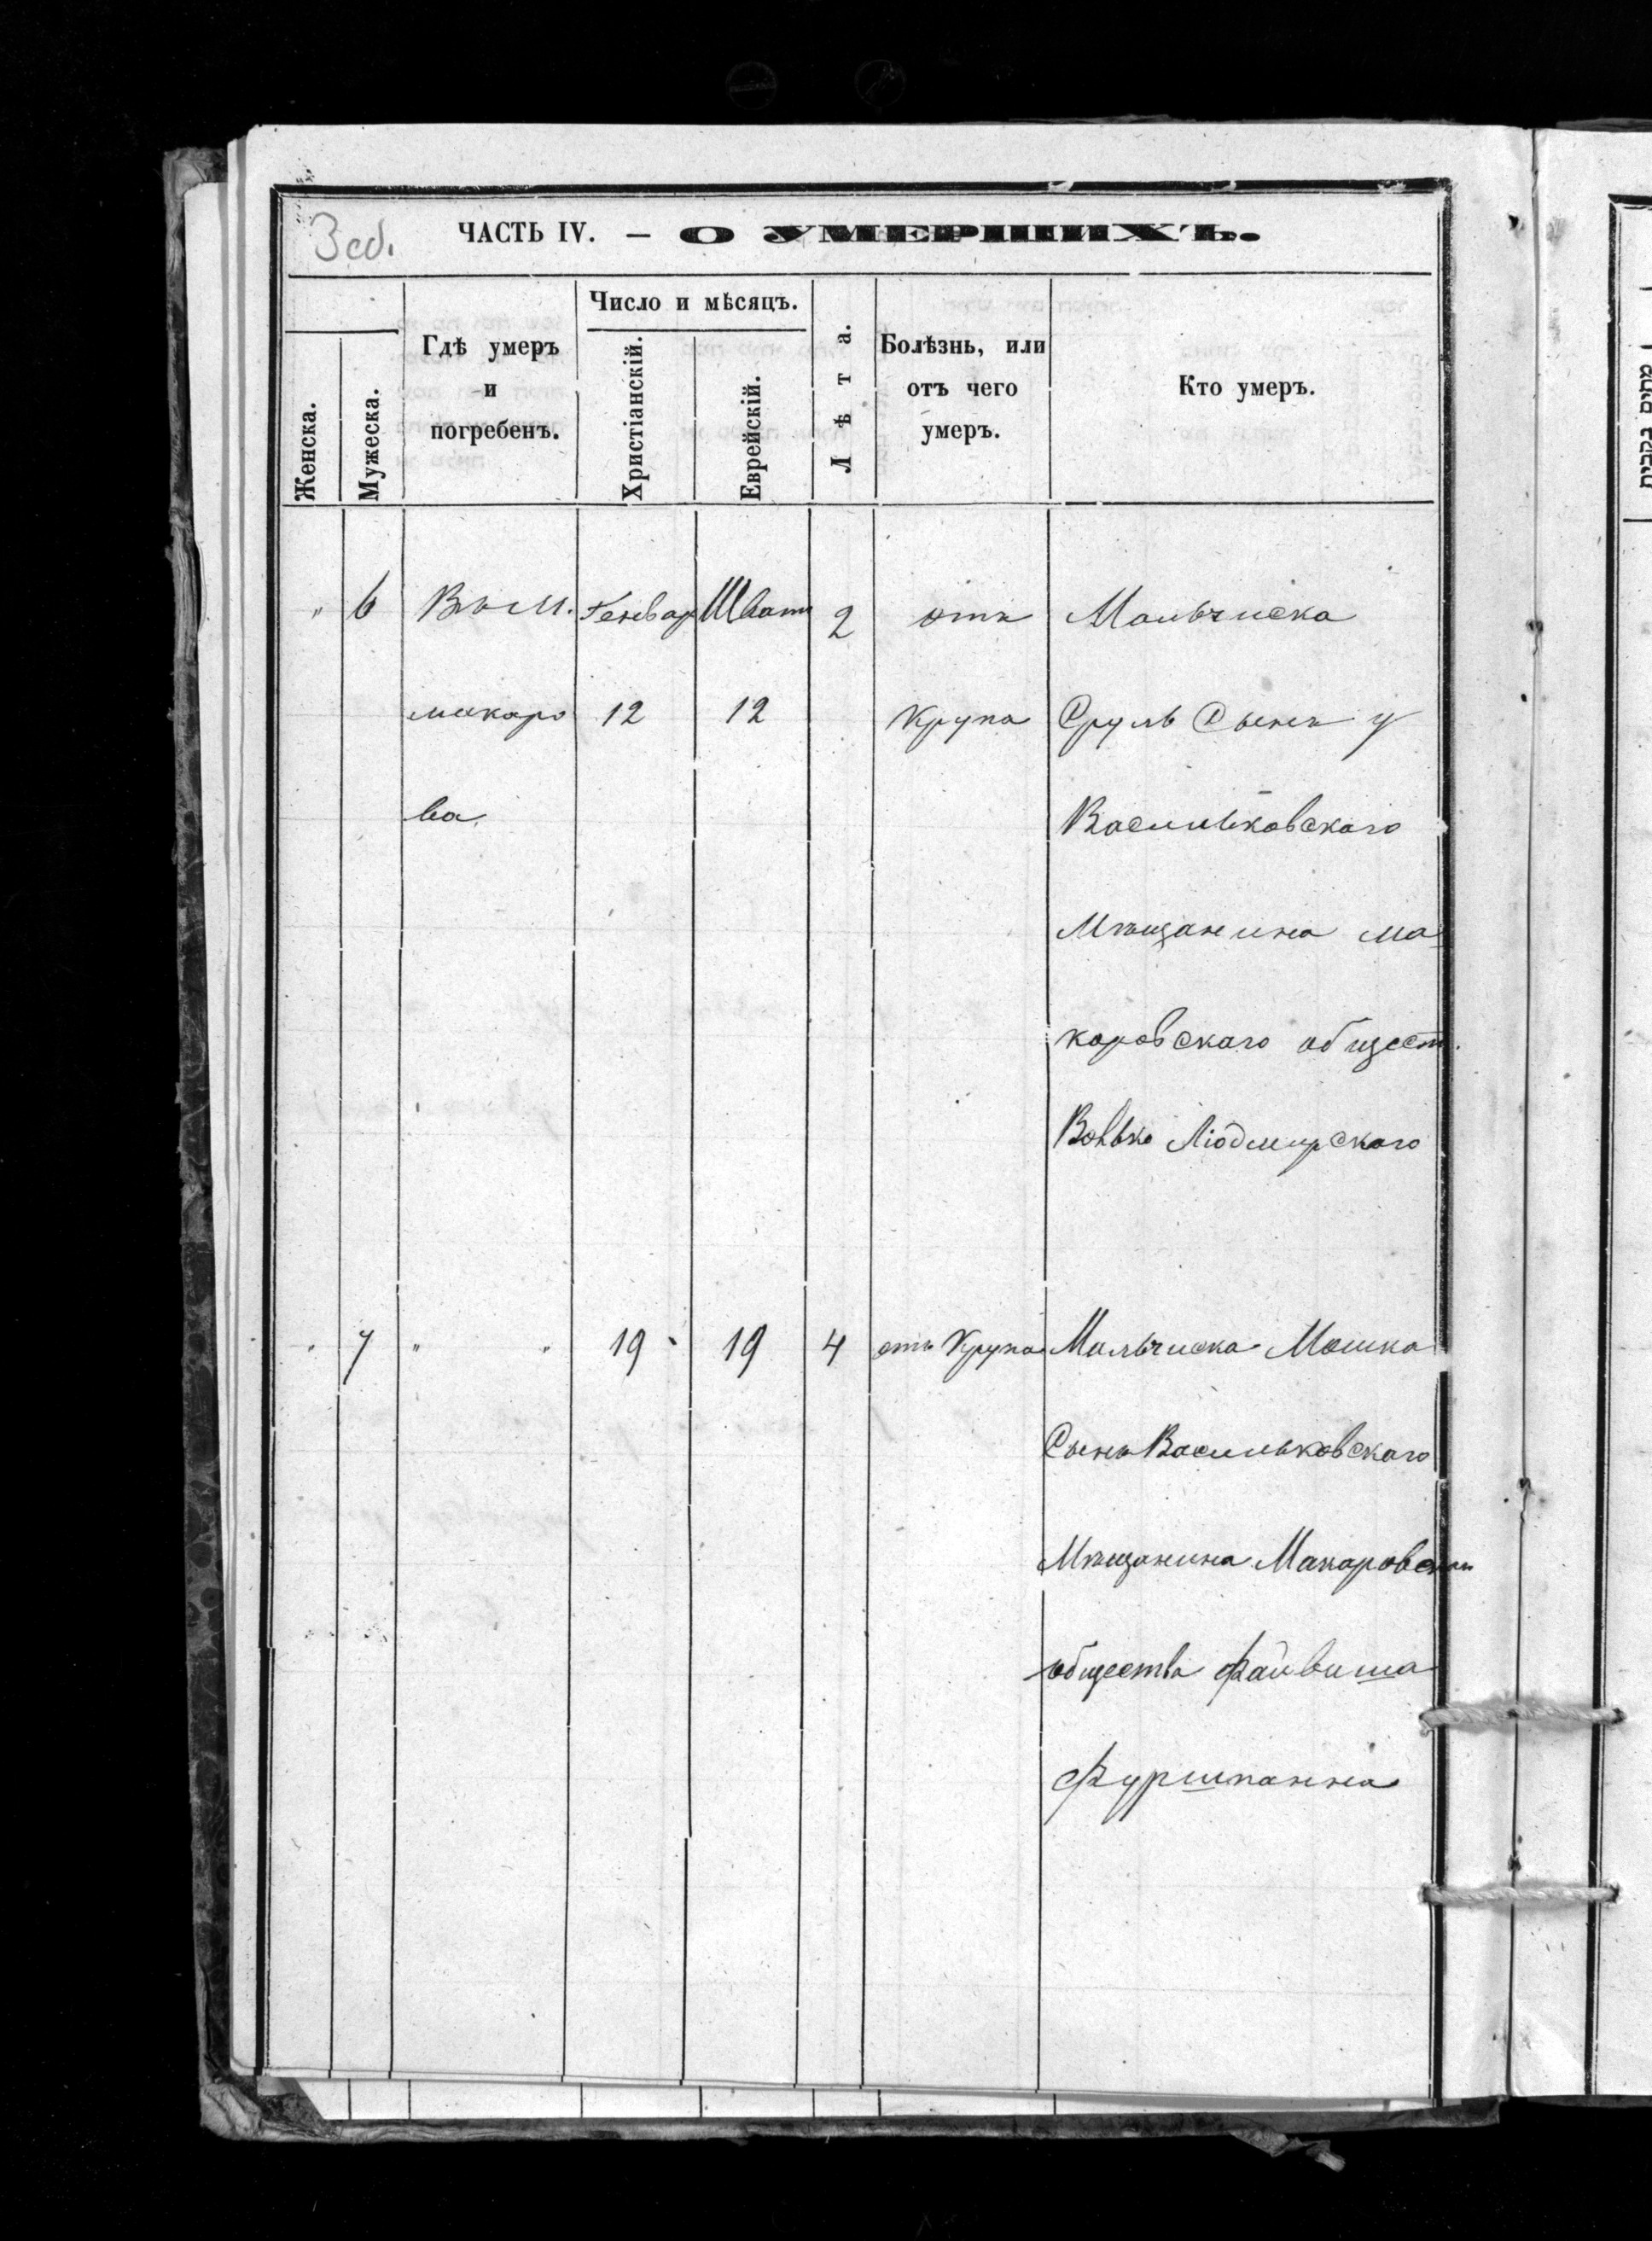 3 об.
ЧАСТЬ IV. — О УМЕРШИХЪ.
Женска.
Мужеска.
Гдѣ умеръ
и
погребенъ.
Число и мѣсяцъ.
Христіанскій.
Еврейскій.
Лѣта.
Болѣзнь, или
отъ чего
умеръ.
Кто умеръ.
" 6 Въ м. Генвар Шватъ 2 отъ Мальчиска
макаро 12 12 Крупа Сруль Сынъ у
ва Васильковскаго
Мѣщанина ма
каровскаго общест.
Волько Людмирскаго
" 7 " " 19 19 4 отъ Крупа Мальчиска Мошка
Сынъ Васильковскаго
Мѣщанина Макаровскаг
общества Файвиша
Фурштанна